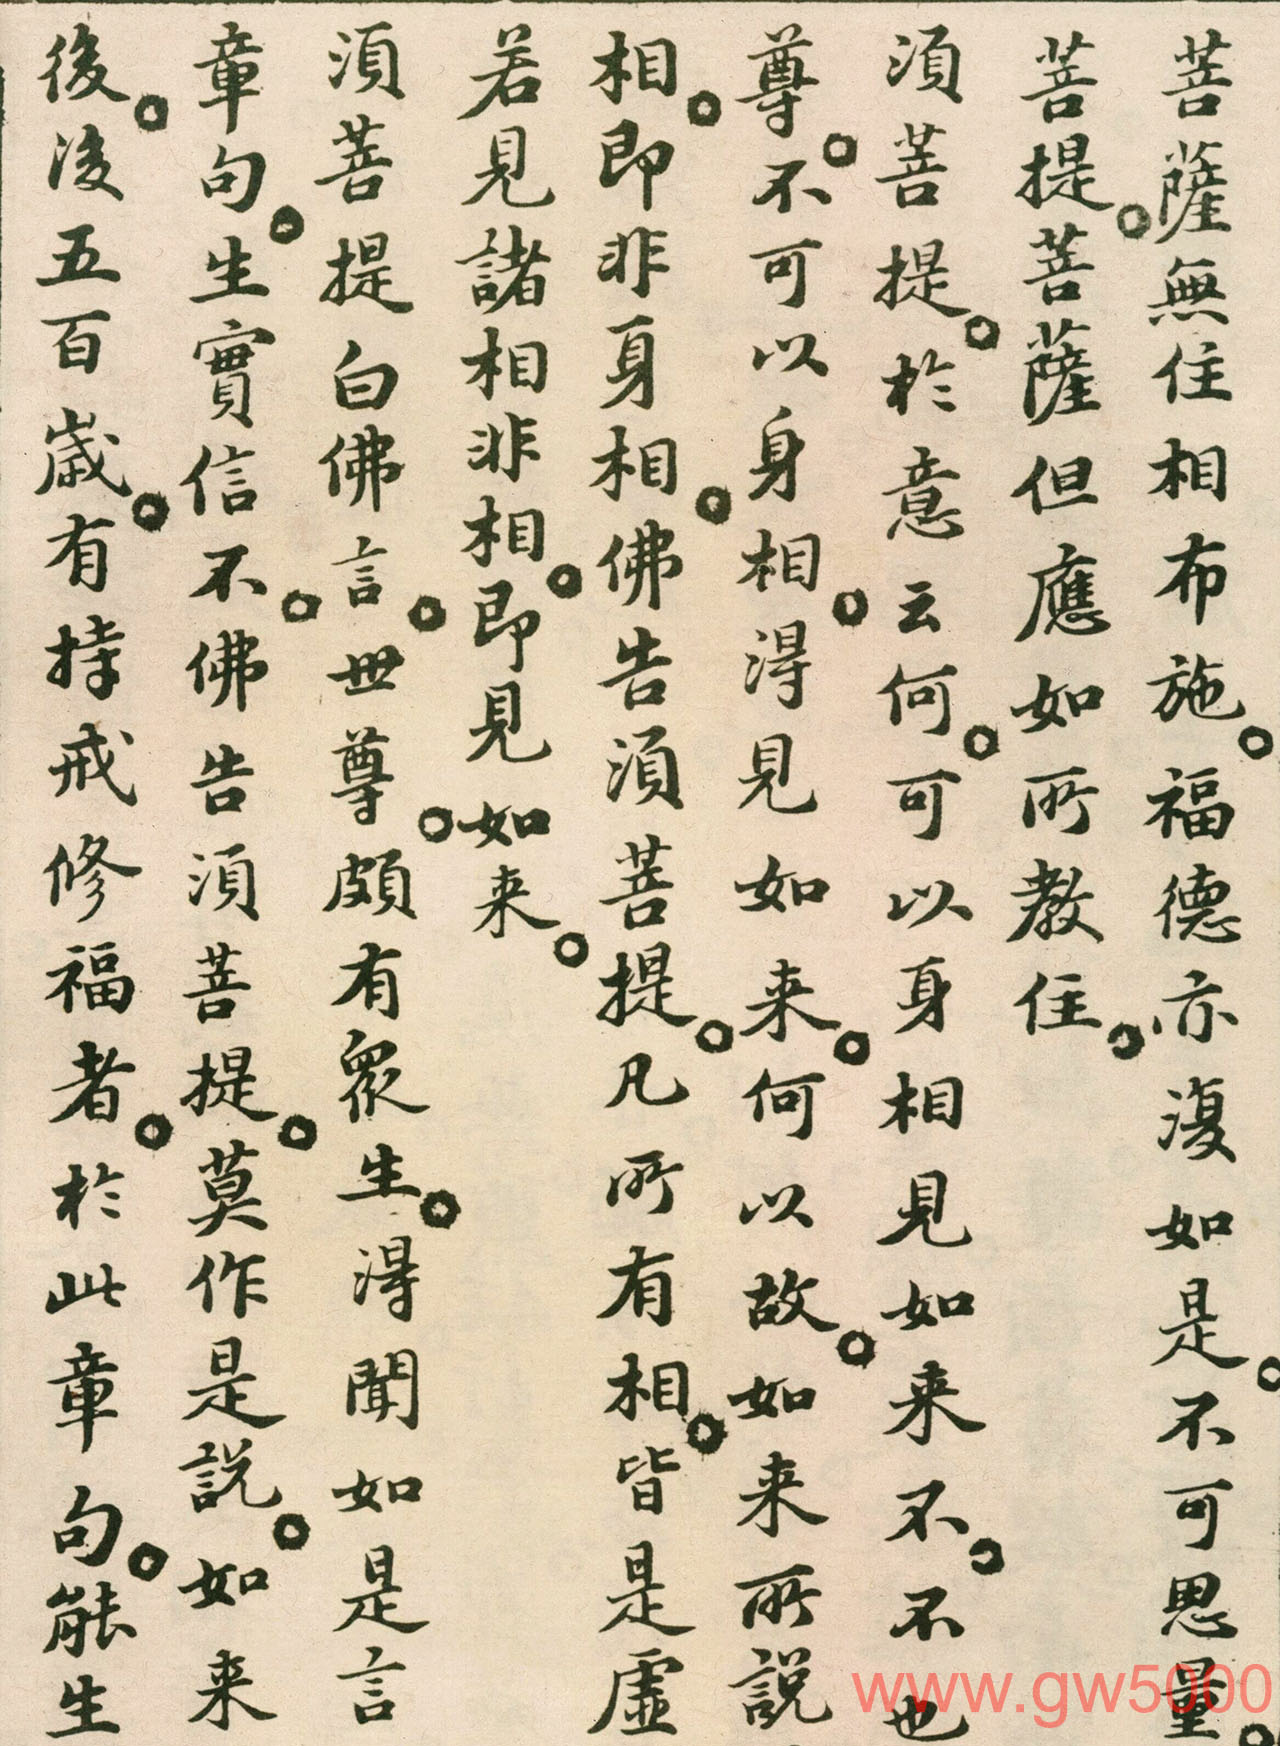 菩薩無住相布施。福德亦復如是。不可思量。
菩提。菩薩但應如所教住。
須菩提。於意云何。可以身相見如来不。不也
尊。不可以身相。得見如来。何以故。如来所說
相。即非身相。佛告須菩提。凡所有相。皆是虛
若見諸相非相。即見如来。
須菩提白佛言。世尊。頗有眾生。得聞如是言
章句。生實信不。佛告須菩提。莫作是說。如来
後。後五百歲。有持戒修福者。於此章句。能生
www.gw5000